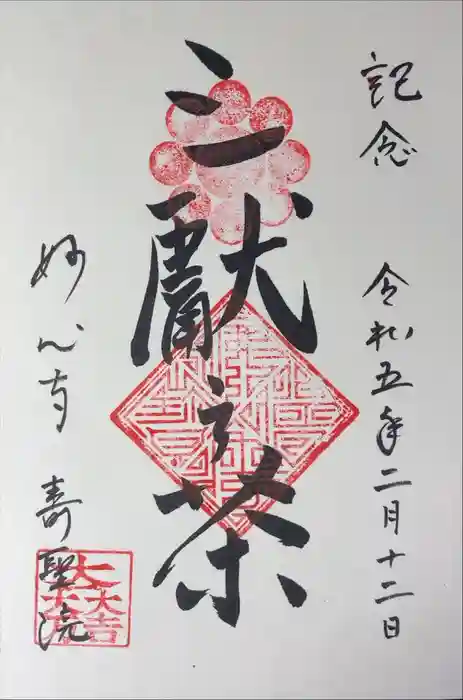 記念 令和五年二月十二日
三獻之茶
妙心寺 寿聖院